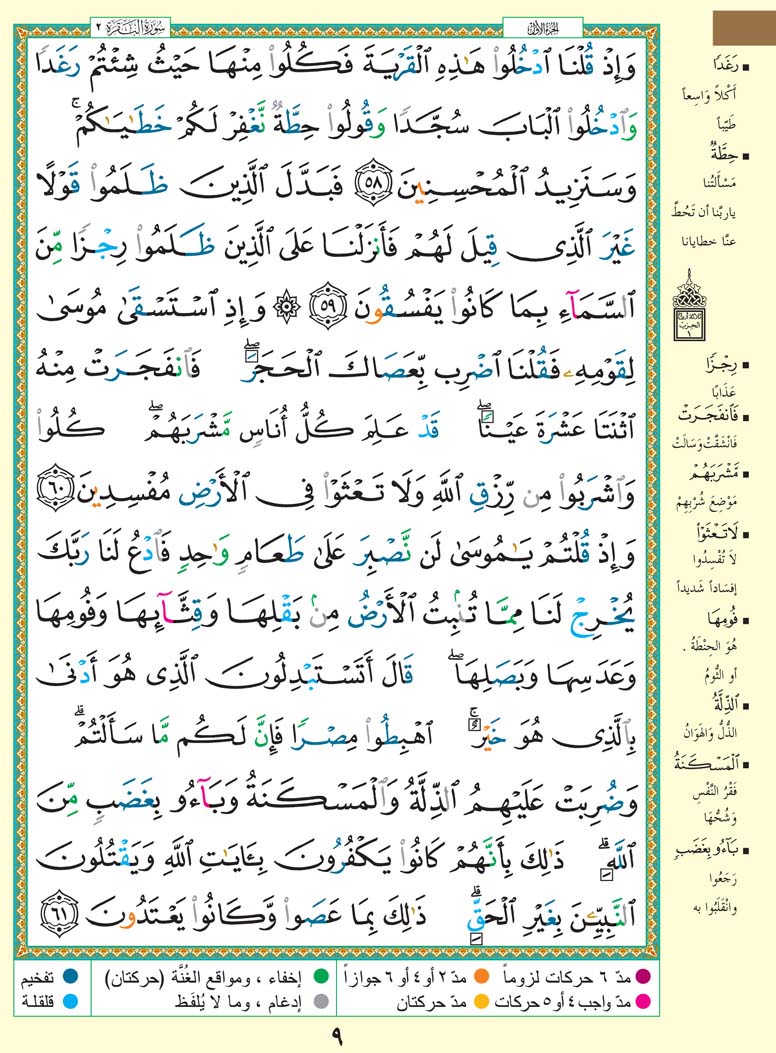 سُورَةُ الْبَقَرَةِ ٢
الجُزءُ الأوّل
وَإِذْ قُلْنَا ادْخُلُوا هَٰذِهِ الْقَرْيَةَ فَكُلُوا مِنْهَا حَيْثُ شِئْتُمْ رَغَدًا
وَادْخُلُوا الْبَابَ سُجَّدًا وَقُولُوا حِطَّةٌ نَّغْفِرْ لَكُمْ خَطَايَاكُمْ ۚ
وَسَنَزِيدُ الْمُحْسِنِينَ ٥٨ فَبَدَّلَ الَّذِينَ ظَلَمُوا قَوْلًا
غَيْرَ الَّذِي قِيلَ لَهُمْ فَأَنزَلْنَا عَلَى الَّذِينَ ظَلَمُوا رِجْزًا مِّنَ
السَّمَاءِ بِمَا كَانُوا يَفْسُقُونَ ٥٩ ۞ وَإِذِ اسْتَسْقَىٰ مُوسَىٰ
لِقَوْمِهِ فَقُلْنَا اضْرِب بِّعَصَاكَ الْحَجَرَ ۖ فَانفَجَرَتْ مِنْهُ
اثْنَتَا عَشْرَةَ عَيْنًا ۖ قَدْ عَلِمَ كُلُّ أُنَاسٍ مَّشْرَبَهُمْ ۖ كُلُوا
وَاشْرَبُوا مِن رِّزْقِ اللَّهِ وَلَا تَعْثَوْا فِي الْأَرْضِ مُفْسِدِينَ ٦٠
وَإِذْ قُلْتُمْ يَا مُوسَىٰ لَن نَّصْبِرَ عَلَىٰ طَعَامٍ وَاحِدٍ فَادْعُ لَنَا رَبَّكَ
يُخْرِجْ لَنَا مِمَّا تُنبِتُ الْأَرْضُ مِن بَقْلِهَا وَقِثَّائِهَا وَفُومِهَا
وَعَدَسِهَا وَبَصَلِهَا ۖ قَالَ أَتَسْتَبْدِلُونَ الَّذِي هُوَ أَدْنَىٰ
بِالَّذِي هُوَ خَيْرٌ ۚ اهْبِطُوا مِصْرًا فَإِنَّ لَكُم مَّا سَأَلْتُمْ ۗ
وَضُرِبَتْ عَلَيْهِمُ الذِّلَّةُ وَالْمَسْكَنَةُ وَبَاءُو بِغَضَبٍ مِّنَ
اللَّهِ ۗ ذَٰلِكَ بِأَنَّهُمْ كَانُوا يَكْفُرُونَ بِآيَاتِ اللَّهِ وَيَقْتُلُونَ
النَّبِيِّينَ بِغَيْرِ الْحَقِّ ۗ ذَٰلِكَ بِمَا عَصَوا وَّكَانُوا يَعْتَدُونَ ٦١
رَغَدًا
أَكْلاً وَاسِعاً
طَيّباً
حِطَّةٌ
مَسْأَلَتُنا
ياربّنا أن تَحُطَّ
عنّا خطايانا
رِجْزًا
عَذَابًا
فَانفَجَرَتْ
فَانْشَقَّتْ وَسَالَتْ
مَّشْرَبَهُمْ
مَوْضِعَ شُرْبِهِمْ
لَا تَعْثَوْا
لاَ تُفْسِدُوا
إفسَاداً شَديداً
فُومِهَا
هُوَ الحِنْطَةُ .
أو الثُّومُ
الذِّلَّةُ
الذُّلُّ وَالهَوَانُ
الْمَسْكَنَةُ
فَقْرُ النَّفْسِ
وَشُحُّهَا
بَاءُو بِغَضَبٍ
رَجَعُوا
وانْقَلَبُوا به
مدّ ٦ حركات لزوماً
مدّ ٢ أو ٤ أو ٦ جوازاً
إخفاء ، ومواقع الغُنَّة (حركتان)
تفخيم
مدّ واجب ٤ أو ٥ حركات
مدّ حركتان
إدغام ، وما لا يُلفَظ
قلقلة
٩